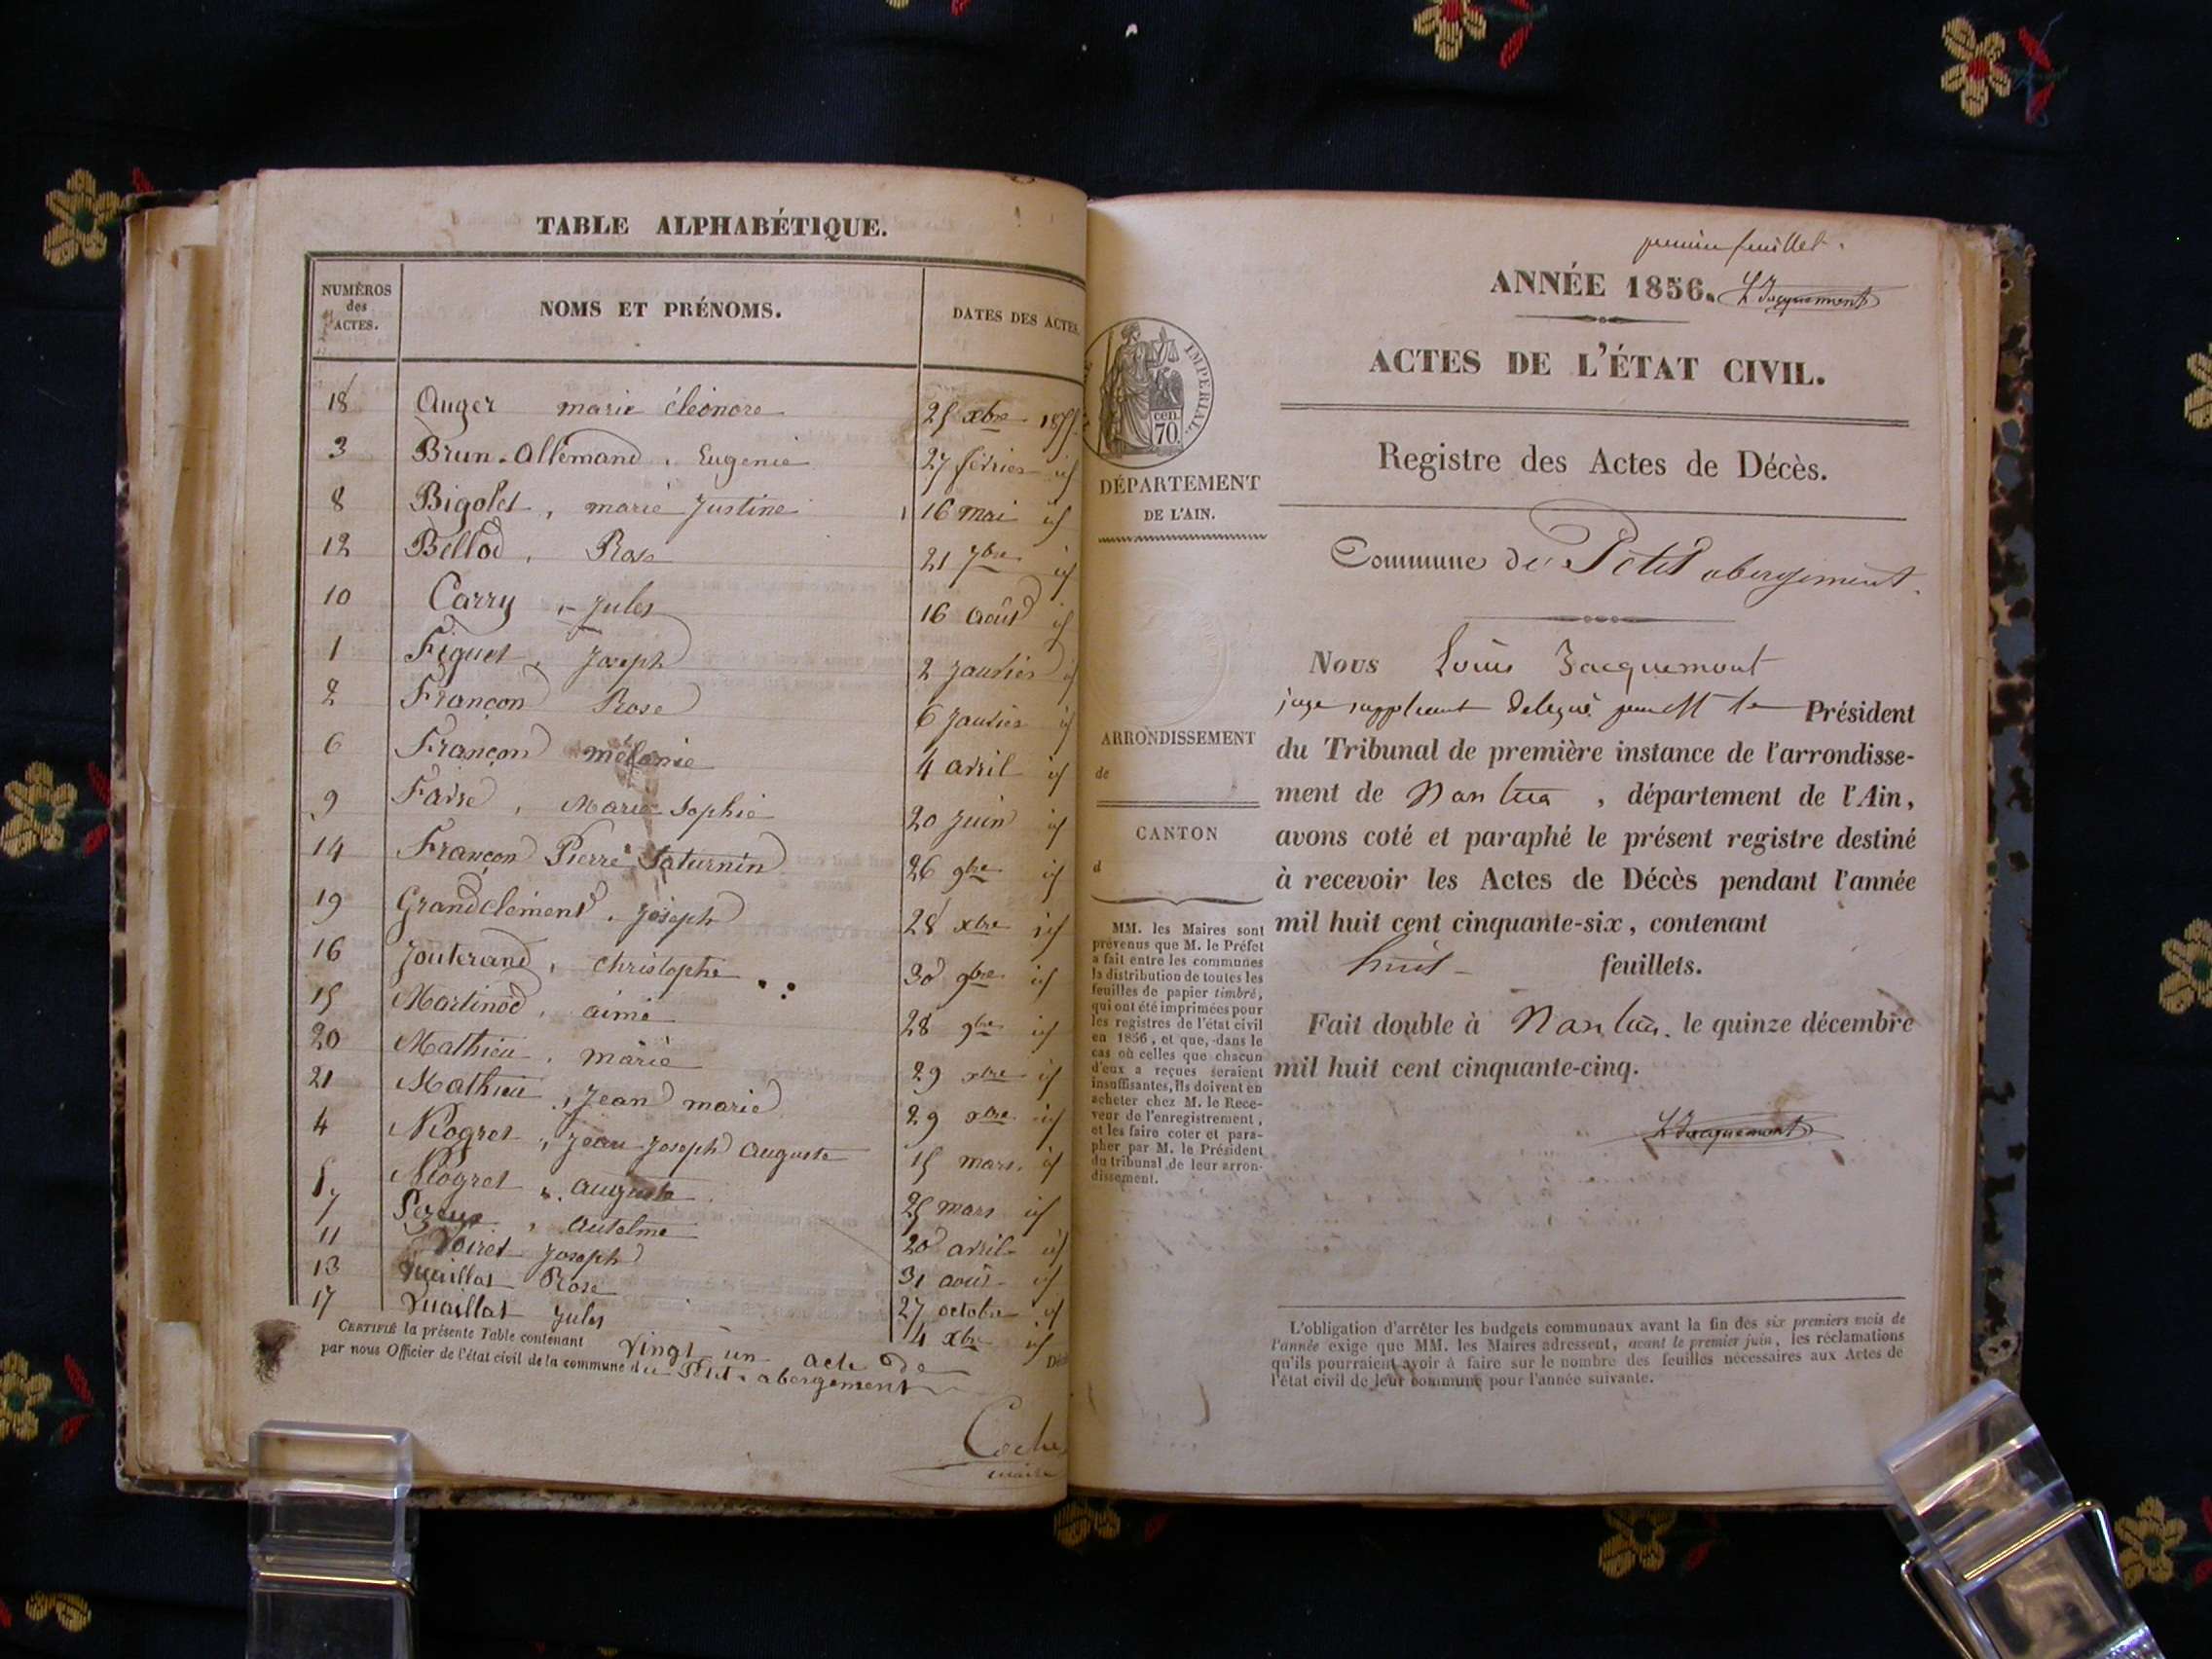 TABLE ALPHABÉTIQUE.
NUMÉROS des ACTES. NOMS ET PRÉNOMS. DATES DES ACTES.
18 Auger marie éléonore 25 xbre 1855
3 Brun-Allemand, Eugenie 27 février id
8 Bigolet, marie Justine 16 mai id
12 Bellod, Rose 21 7bre id
10 Carry, Jules 16 Août id
1 Figuet, Joseph 2 Janvier id
2 Françon Rose 6 Janvier id
6 Françon mélanie 4 avril id
9 Favre, Marie Sophie 20 Juin id
14 Françon Pierre Saturnin 26 9bre id
19 Grandclément, Joseph 28 xbre id
16 Jouterand, Christophe 30 9bre id
15 Martinod, aimé 28 9bre id
20 Mathieu, marie 29 xbre id
21 Mathieu, Jean marie 29 xbre id
4 Niogret, Jean Joseph Auguste 15 mars id
5 Niogret, auguste 25 mars id
7 Antelme 20 avril id
11 Voiret Joseph 31 août id
13 Vuaillat Rose 27 octobre id
17 Vuaillat Jules 4 xbre id
CERTIFIÉ la présente Table contenant vingt un acte de
par nous Officier de l'état civil de la commune du Petit-abergement
Coche
maire
premier feuillet.
ANNÉE 1856. L Jacquemont
ACTES DE L'ÉTAT CIVIL.
Registre des Actes de Décès.
Commune de Petit abergement.
IMPÉRIAL.
cen.
70.
DÉPARTEMENT
DE L'AIN.
ARRONDISSEMENT
de
CANTON
d
MM. les Maires sont
prévenus que M. le Préfet
a fait entre les communes
la distribution de toutes les
feuilles de papier timbré,
qui ont été imprimées pour
les registres de l'état civil
en 1856, et que, dans le
cas où celles que chacun
d'eux a reçues seraient
insuffisantes, ils doivent en
acheter chez M. le Rece-
veur de l'enregistrement,
et les faire coter et para-
pher par M. le Président
du tribunal de leur arron-
dissement.
Nous Louis Jacquemont
juge suppléant délégué par M le Président
du Tribunal de première instance de l'arrondisse-
ment de Nantua, département de l'Ain,
avons coté et paraphé le présent registre destiné
à recevoir les Actes de Décès pendant l'année
mil huit cent cinquante-six, contenant
huit feuillets.
Fait double à Nantua. le quinze décembre
mil huit cent cinquante-cinq.
L Jacquemont
L'obligation d'arrêter les budgets communaux avant la fin des six premiers mois de
l'année exige que MM. les Maires adressent, avant le premier juin, les réclamations
qu'ils pourraient avoir à faire sur le nombre des feuilles nécessaires aux Actes de
l'état civil de leur commune pour l'année suivante.